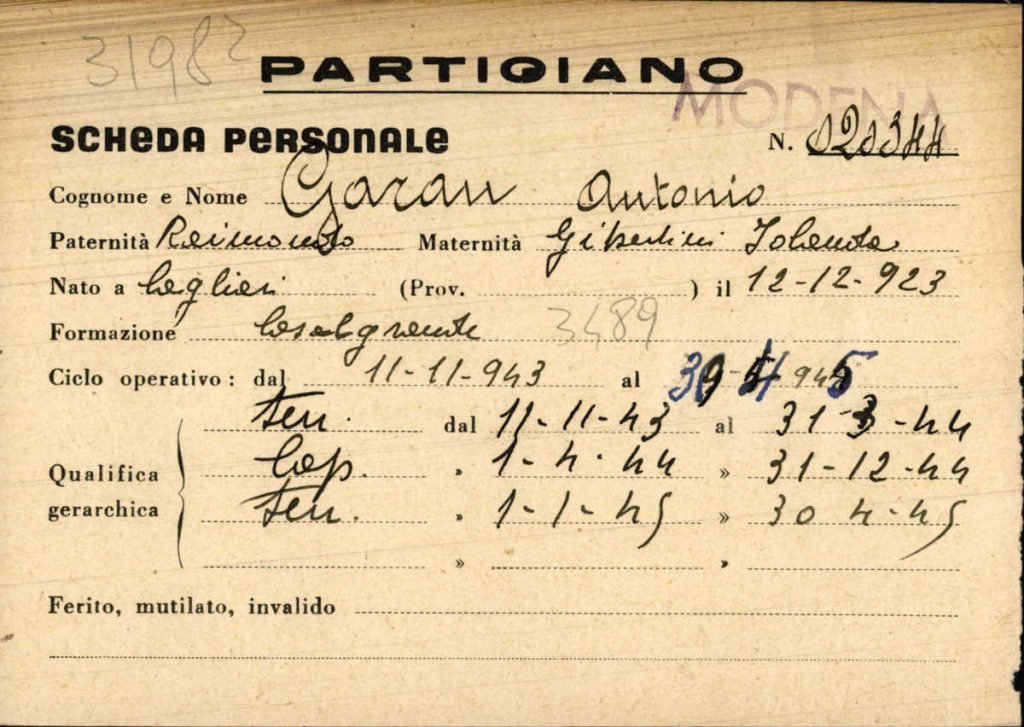 3198?
PARTIGIANO
MODENA
SCHEDA PERSONALE N. 020344
Cognome e Nome Garau Antonio
Paternità Raimondo Maternità Gibertini Jolanda
Nato a Cagliari (Prov. ) il 12-12-923
Formazione Casalgrande 3489
Ciclo operativo : dal 11-11-943 al 30 4 945
ten. dal 11-11-43 al 31-3-44
Qualifica gerarchica
Cap. » 1-4-44 » 31-12-44
ten. » 1-1-45 » 30 4-45
» »
Ferito, mutilato, invalido